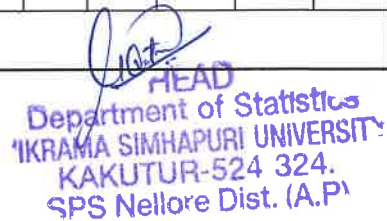 HEAD
Department of Statistics
'IKRAMA SIMHAPURI UNIVERSITY
KAKUTUR-524 324.
SPS Nellore Dist. (A.P)